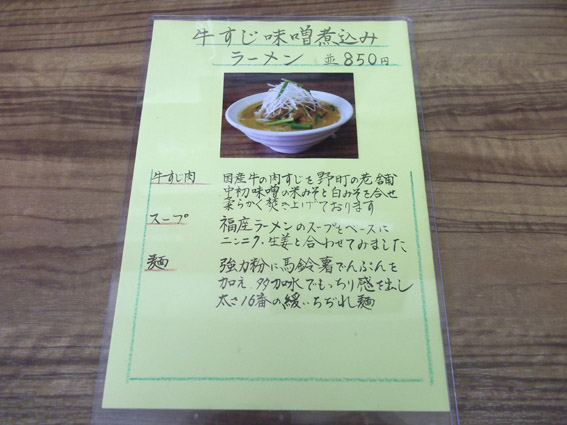 牛すじ味噌煮込み
ラーメン 並850円
牛すじ肉 国産牛の肉すじを野町の老舗
中初味噌の米みそと白みそを合せ
柔らかく焚き上げております
スープ 福座ラーメンのスープをベースに
ニンニク、生姜と合わせてみました
麺 強力粉に馬鈴薯でんぷんを
加え、多加水でもっちり感を出し
太さ16番の緩いちぢれ麺